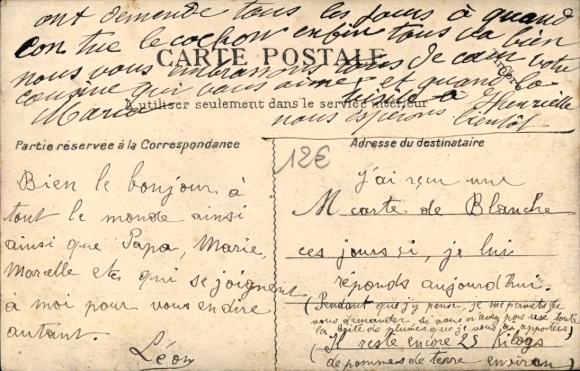 ont demandé tous les jours à quand
con tue le cochon enfin tous va bien
nous vous embrassons de cœur votre
CARTE POSTALE
cousine qui vous aime et
Marie à Henriette
A utiliser seulement dans le service intérieur
nous espérons bientôt
Partie réservée à la Correspondance
Bien le bonjour à
tout le monde ainsi
ainsi que Papa, Marie,
Marcelle etc qui se joignent
à moi pour vous en dire
autant.
Léon
12€
Adresse du destinataire
J'ai reçu une
carte de Blanche
ces jours si, je lui
réponds aujourd'hui.
(Pendant que j'y pense, je me permets de
vous demander si vous n'avez pas usé toute
la boîte de plumes que je vous ai apportées)
(Il reste encore 25 kilogs
de pommes de terre environ)